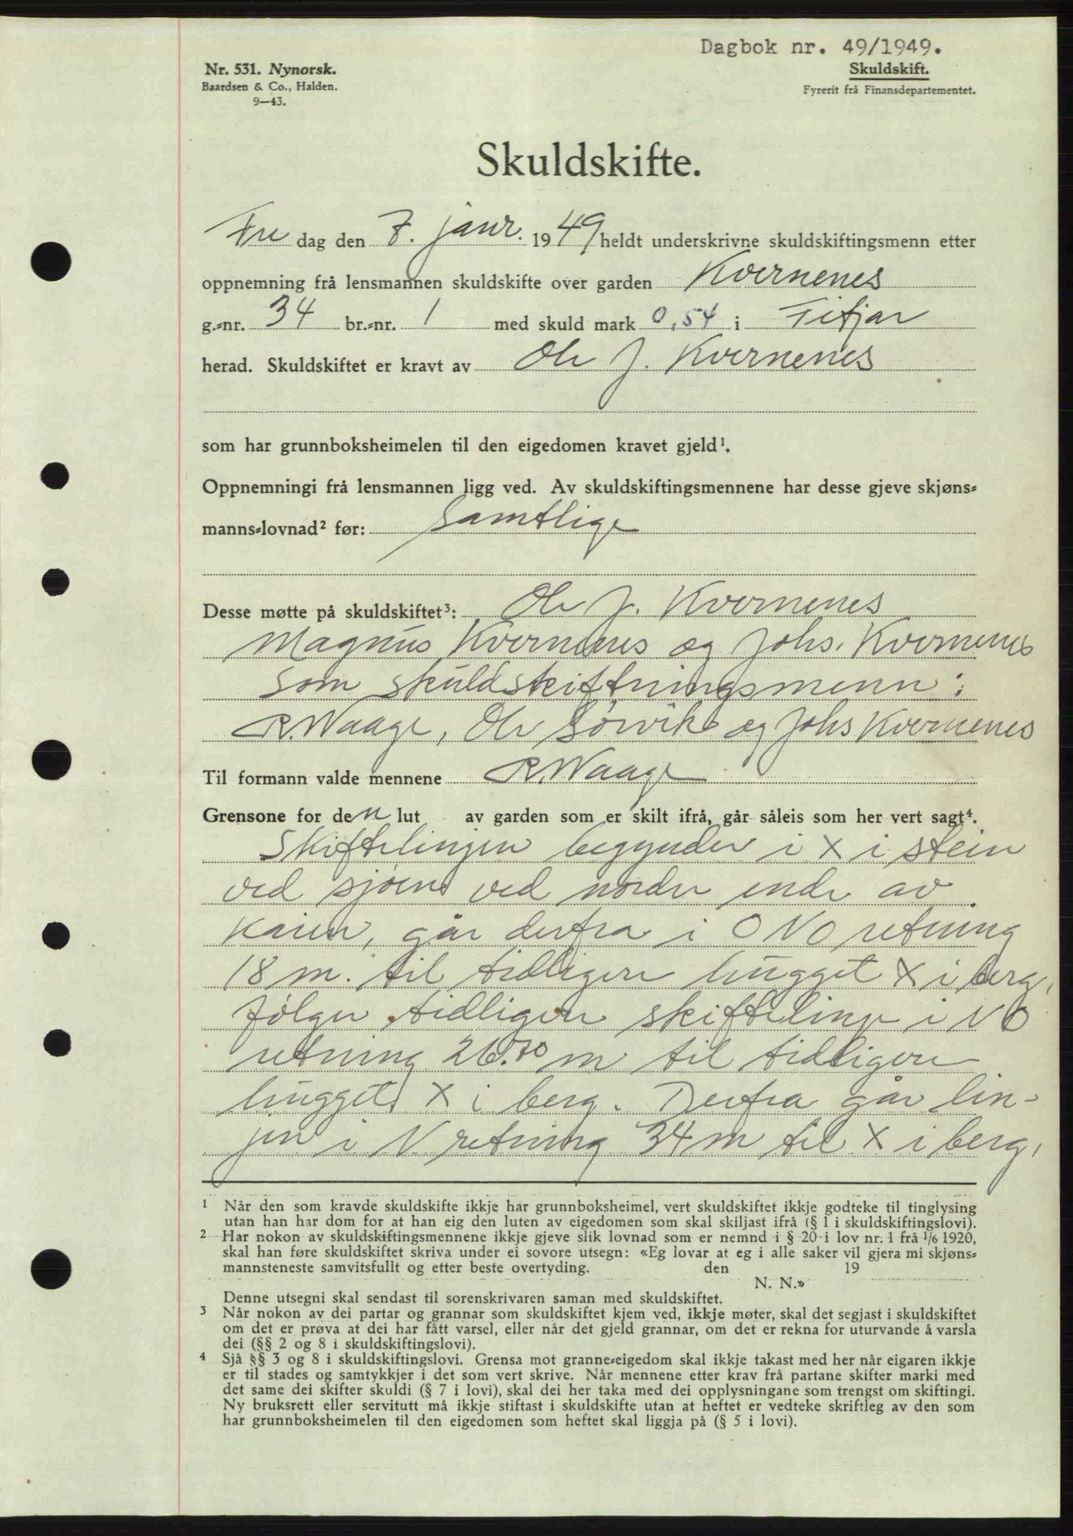 Dagbok nr. 49/1949.
Nr. 531. Nynorsk.
Baardsen & Co., Halden.
9—43.
Skuldskift.
Fyrerit frå Finansdepartementet.
Skuldskifte.
Fre dag den 7. janr. 1949 heldt underskrivne skuldskiftingsmenn etter
oppnemning frå lensmannen skuldskifte over garden Kvernenes
g.-nr. 34 br.-nr. 1 med skuld mark 0,54 i Fitjar
herad. Skuldskiftet er kravt av Ole J. Kvernenes
som har grunnboksheimelen til den eigedomen kravet gjeld¹.
Oppnemningi frå lensmannen ligg ved. Av skuldskiftingsmennene har desse gjeve skjøns-
manns-lovnad² før: Samtlige
Desse møtte på skuldskiftet³: Ole J. Kvernenes
Magnus Kvernenes og Johs. Kvernenes
Som skuldskiftningsmenn:
R. Waage, Ole Sørvik og Johs Kvernenes
Til formann valde mennene R. Waage
Grensone for den lut av garden som er skilt ifrå, går såleis som her vert sagt⁴.
Skiftelinjen begynder i X i stein
ved sjøen ved nordre ende av
Kaien, går derfra i ONO retning
18 m. til tidligere hugget X i berg,
følger tidligere skiftelinje i NO
retning 26.70 m til tidligere
hugget X i berg. Derfra går lin-
jen i N. retning 34 m til X i berg,
¹ Når den som kravde skuldskifte ikkje har grunnboksheimel, vert skuldskiftet ikkje godteke til tinglysing
utan han har dom for at han eig den luten av eigedomen som skal skiljast ifrå (§ 1 i skuldskiftingslovi).
² Har nokon av skuldskiftingsmennene ikkje gjeve slik lovnad som er nemnd i § 20 i lov nr. 1 frå 1/6 1920,
skal han føre skuldskiftet skriva under ei sovore utsegn: «Eg lovar at eg i alle saker vil gjera mi skjøns-
mannsteneste samvitsfullt og etter beste overtyding. den 19
N. N.»
Denne utsegni skal sendast til sorenskrivaren saman med skuldskiftet.
³ Når nokon av dei partar og grannar som skuldskiftet kjem ved, ikkje møter, skal det segjast i skuldskiftet
om det er prøva at dei har fått varsel, eller når det gjeld grannar, om det er rekna for uturvande å varsla
dei (§§ 2 og 8 i skuldskiftingslovi).
⁴ Sjå §§ 3 og 8 i skuldskiftingslovi. Grensa mot granne-eigedom skal ikkje takast med her når eigaren ikkje
er til stades og samtykkjer i det som vert skrive. Når mennene etter krav frå partane skifter marki med
det same dei skifter skuldi (§ 7 i lovi), skal dei her taka med dei opplysningane som trengst om skiftingi.
Ny bruksrett eller servitutt må ikkje stiftast i skuldskifte utan at heftet er vedteke skriftleg av den som
har grunnboksheimelen til den eigedomen som heftet skal liggja på (§ 5 i lovi).